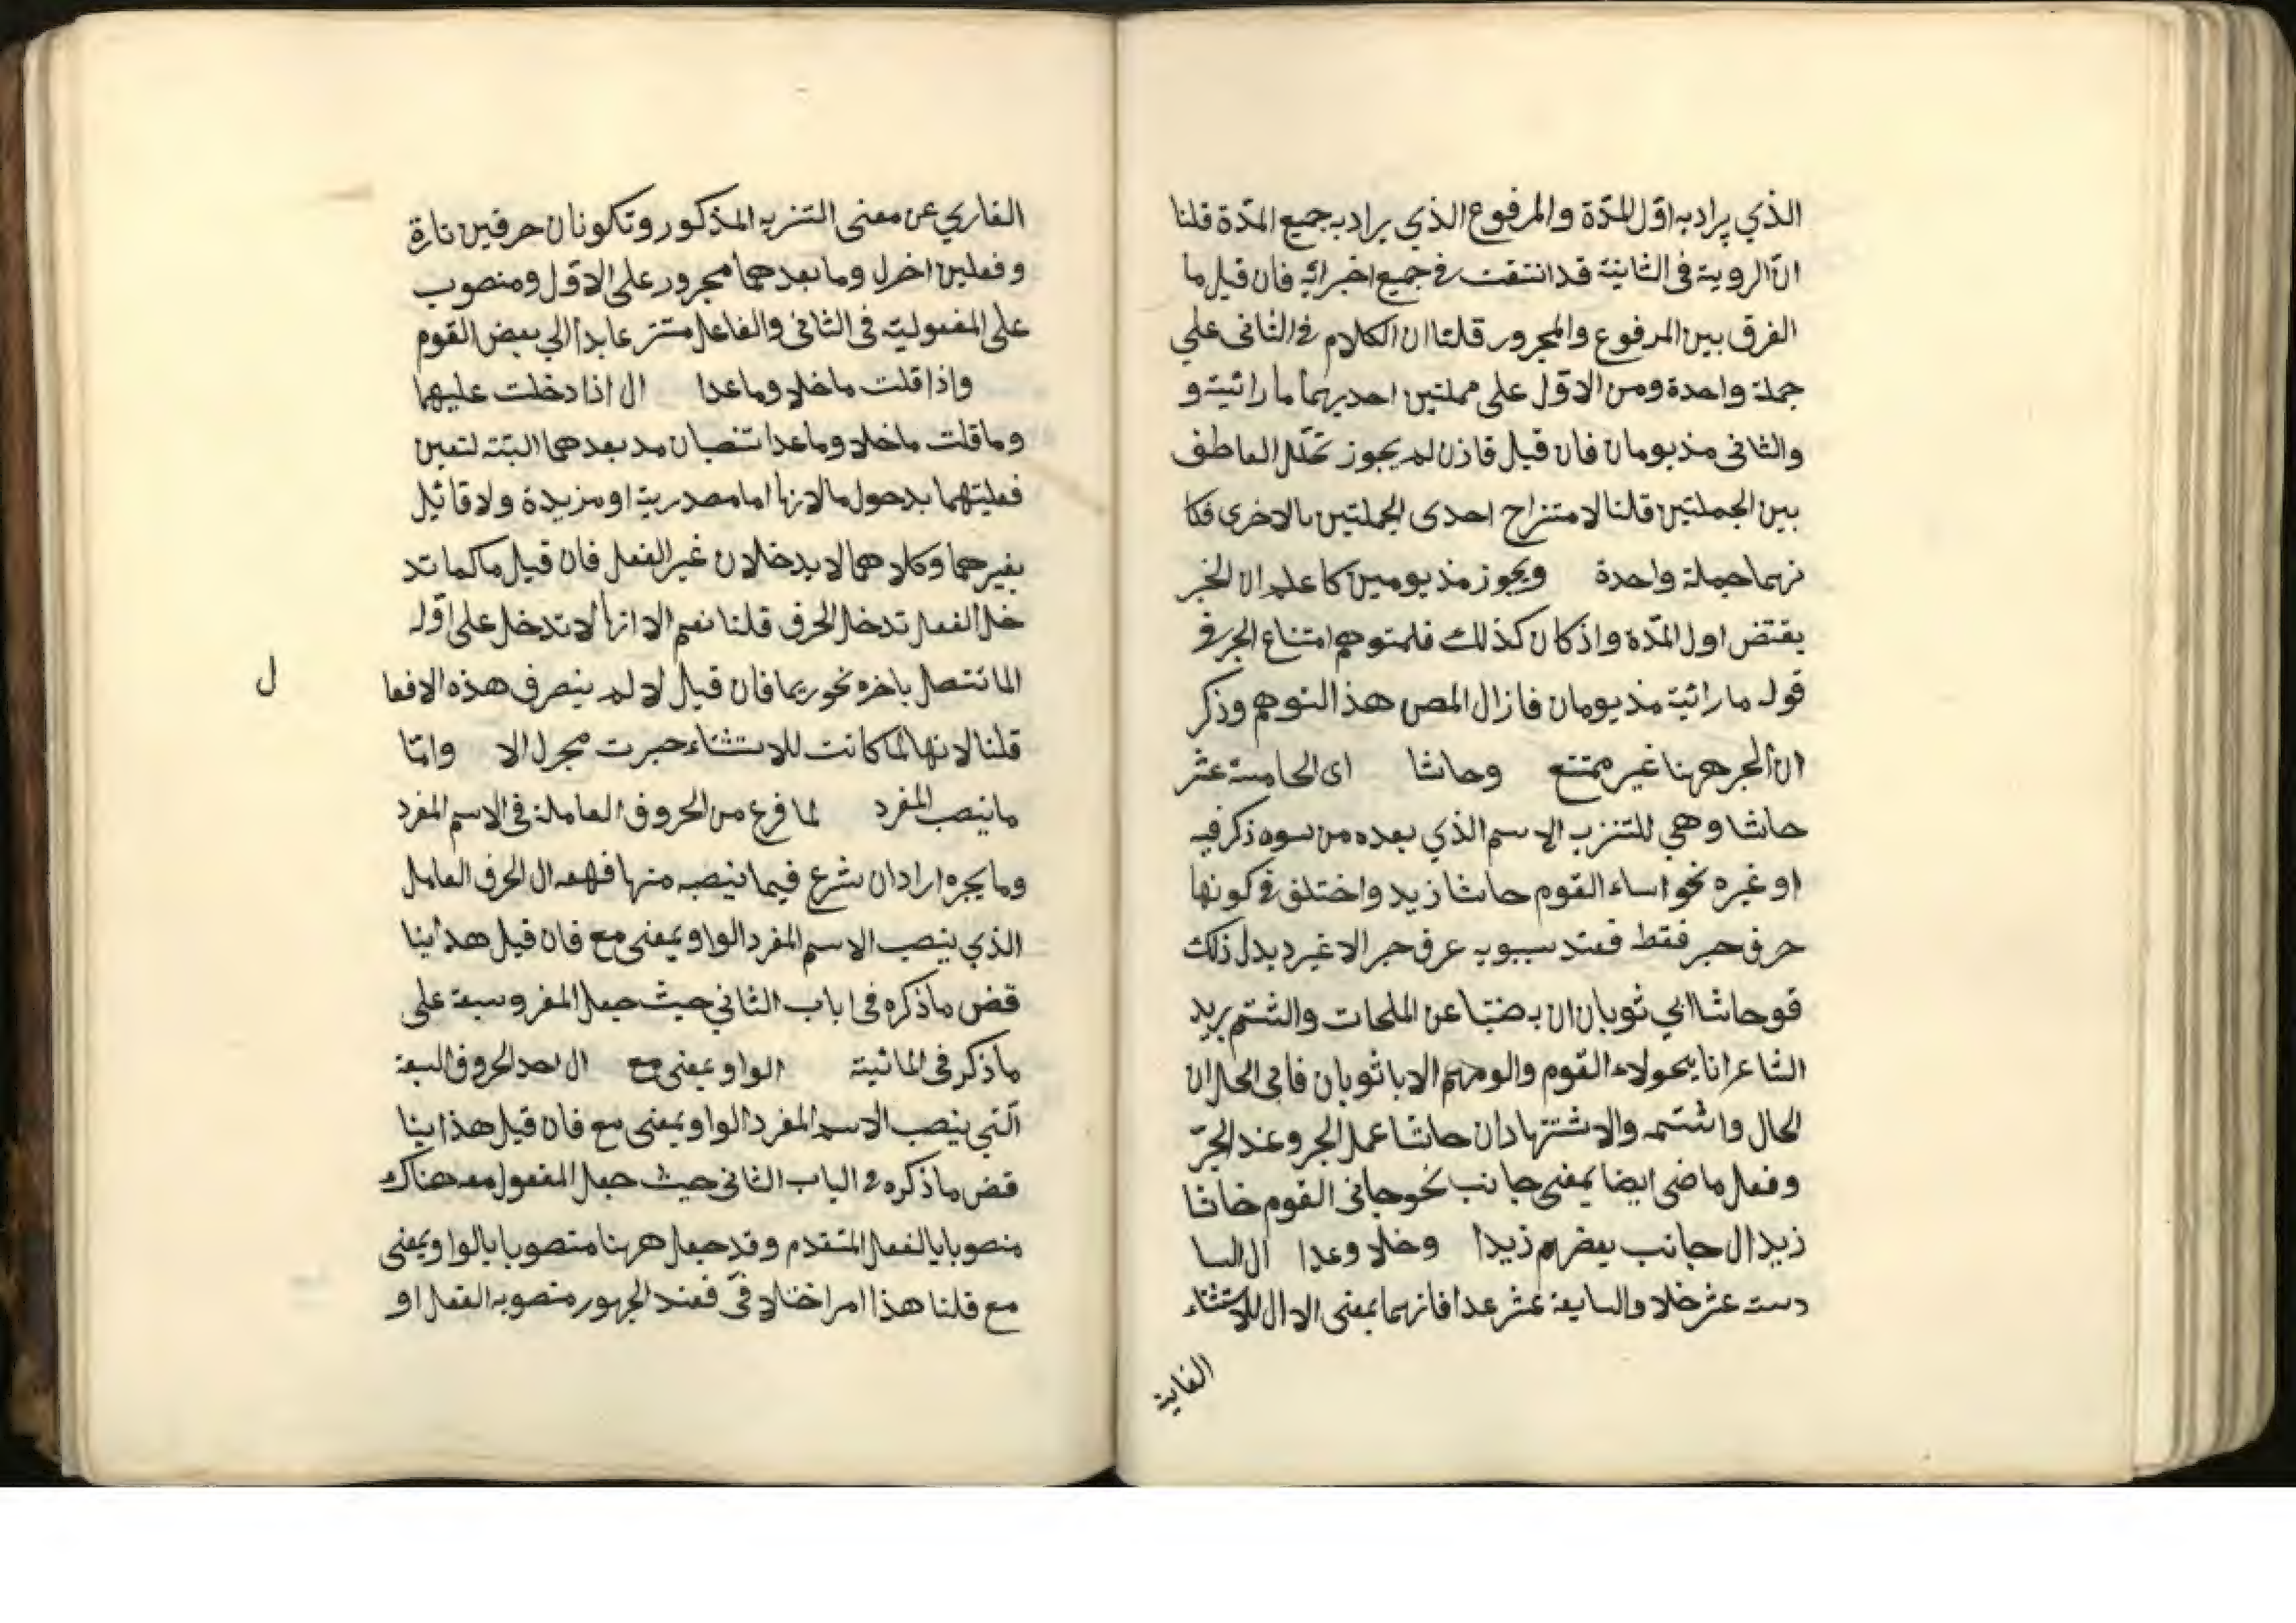 الذي يراد به اوّل المدّة والمرفوع الذي يراد به جميع المدّة قلنا
انّ الروية فى الثانية قد انتفت فى جميع اجزائه فان قيل ما
الفرق بين المرفوع والمجرور قلنا ان الكلام فى الثانى علي
جملة واحدة ومن الاوّل على جملتين احديهما ما رائيته و
والثانى مذ يومان فان قيل فاذن لم يجوز تخلّل العاطف
بين الجملتين قلنا لامتزاج احدى الجملتين بالاخرى فكا
نهما جملة واحدة ويجوز مذ يومين كا علم ان الخبر
يقتض اول المدّة واذ كان كذلك فلمتوهم امتناع الجر فى
قوله ما رائية مذ يومان فازال المص هذ التوهم وذكر
ان الجر ههنا غير ممتنع وحاشا اى الخامسة عشر
حاشا وهي للتنزيه الاسم الذي بعده من سوء ذكر فيه
او غيره نحو اساء القوم حاشا زيد واختلف فى كونها
حرف جر فقط فعند سيبويه عرف جر الا غير د بدل ذلك
قو حاشا ابي ثوبان ان به ضنّا عن الملحات والشتم يريد
الشاعر انا يحولاء القوم والومهم الا باثوبان فافى الحال ان
الحال واشتمه والاشتهاد ان حاشا عمل الجر وعند الجرّ
وفعل ماضى ايضا بمعنى جانب نحو جانى القوم خاشا
زيد ال جانب بعضهم زيدا وخلا وعدا ال السا
دسته عشر خلا والسابعة عشر عدا فانهما بمعنى الا ال للاستثناء
الغاية
الفاري عن معنى التنزيه المذكور وتكونان حرفين تارة
وفعلين اخرل وما بعدهما مجرور على الاوّل ومنصوب
على المفعولية فى الثانى والفاعل مستتر عايد الي بعض القوم
واذا قلت ماخلا وماعدا ال اذا دخلت عليهما
وما قلت ماخلا وماعدا تنصبان مد بعدهما البتّة لتعين
فعليتهما بدحول ما لانها اما مصدرية او مزيدة ولا قائيل
بغيرهما وكلاهما لا يدخلان غير الفعل فان قيل ما كما تد
خل الفعل تدخل الحرف قلنا نعم الا انها لا تدخل على اوّله
المائتصل باخره نحو ربما فان قيل لا لم ينصرف هذه الافعا
ل
قلنا لانها لما كانت للاستثناء جبرت مجرل الا وامّا
ما ينصب المفرد لما فرع من الحروف العاملة فى الاسم المفرد
وما يجره اراد ان شرع فيما ينصبه منها فهعه ال الحرف العامل
الذي ينصب الاسم المفرد الواو بمعنى مع فان قيل هذا ينا
قض ما ذكره فى اباب الثاني حيث جعل المفر وسبعة على
ما ذكر فى المائية الواو بمعنى مع ال احد الحروف السبعة
الّتي ينصب الاسم المفرد الواو بمعنى مع فان قيل هذا ينا
قض ما ذكره فى الباب الثانى حيث جعل المفعول معه هناك
منصوبا بالفعل المتقدم وقد جعل ههنا منصوبا بالواو بمعنى
مع قلنا هذا امر اختلافىّ فعند الجهور منصوبه الفعل او